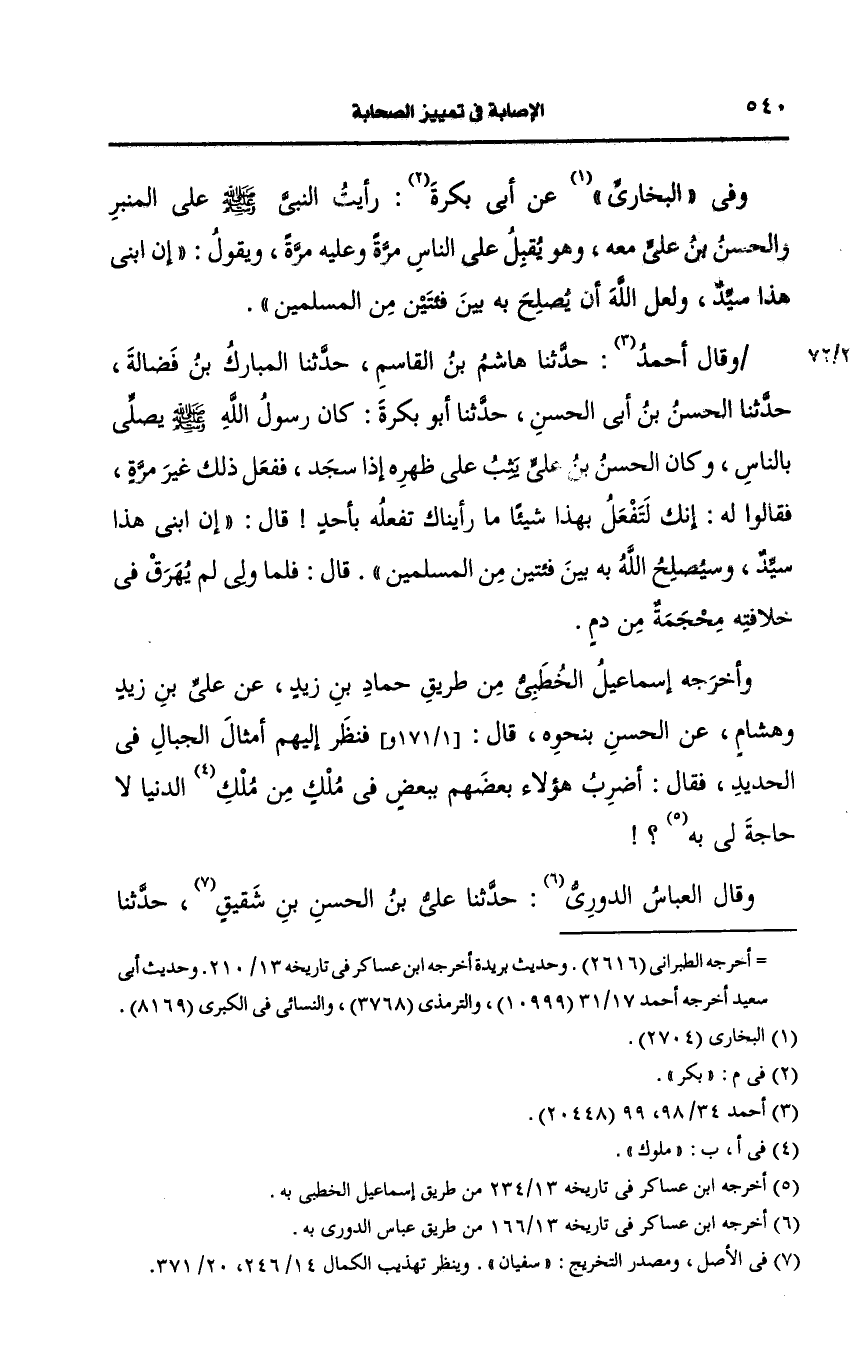 ٥٤٠ الإصابة فى تمييز الصحابة
وفى « البخارىِّ »(١) عن أبى بكرةَ(٢) : رأيتُ النبىَّ ﷺ على المنبرِ
والحسنُ بنُ علىٍّ معه ، وهو يُقبِلُ على الناسِ مرَّةً وعليه مرَّةً ، ويقولُ : « إن ابنى
هذا سيِّدٌ ، ولعل اللَّهَ أن يُصلِحَ به بينَ فئتَيْن مِن المسلمين » .
٧٢/٢ /وقال أحمدُ(٣) : حدَّثنا هاشمُ بنُ القاسمِ ، حدَّثنا المباركُ بنُ فَضالةَ ،
حدَّثنا الحسنُ بنُ أبى الحسنِ ، حدَّثنا أبو بكرةَ : كان رسولُ اللَّهِ ﷺ يصلِّى
بالناسِ ، وكان الحسنُ بنُ علىٍّ يَثِبُ على ظهرِه إذا سجَد ، ففعَل ذلك غيرَ مرَّةٍ ،
فقالوا له : إنك لَتَفْعَلُ بهذا شيئًا ما رأيناك تفعلُه بأحدٍ ! قال : « إن ابنى هذا
سيِّدٌ ، وسيُصلِحُ اللَّهُ به بينَ فئتين مِن المسلمين » . قال : فلما ولِى لم يُهَرَقْ فى
خلافتِه مِحْجَمَةٌ مِن دمٍ .
وأخرَجه إسماعيلُ الخُطَبِىُّ مِن طريقِ حمادِ بنِ زيدٍ ، عن علىِّ بنِ زيدٍ
وهشامٍ ، عن الحسنِ بنحوِه ، قال : [١٧١/١و] فنظَر إليهم أمثالَ الجبالِ فى
الحديدِ ، فقال : أضرِبُ هؤلاء بعضَهم ببعضٍ فى مُلْكٍ مِن مُلْكِ(٤) الدنيا لا
حاجةَ لى به(٥) ؟ !
وقال العباسُ الدورِىُّ(٦) : حدَّثنا علىُّ بنُ الحسنِ بنِ شَقيقٍ(٧) ، حدَّثنا
= أخرجه الطبرانى (٢٦١٦) . وحديث بريدة أخرجه ابن عساكر فى تاريخه ٢١٠/١٣. وحديث أبى
سعيد أخرجه أحمد ٣١/١٧ (١٠٩٩٩) ، والترمذى (٣٧٦٨) ، والنسائى فى الكبرى (٨١٦٩) .
(١) البخارى (٢٧٠٤) .
(٢) فى م : « بكر » .
(٣) أحمد ٩٨/٣٤، ٩٩ (٢٠٤٤٨) .
(٤) فى أ ، ب : « ملوك » .
(٥) أخرجه ابن عساكر فى تاريخه ٢٣٤/١٣ من طريق إسماعيل الخطبى به .
(٦) أخرجه ابن عساكر فى تاريخه ١٦٦/١٣ من طريق عباس الدورى به .
(٧) فى الأصل ، ومصدر التخريج : « سفيان » . وينظر تهذيب الكمال ٢٤٦/١٤، ٣٧١/٢٠.